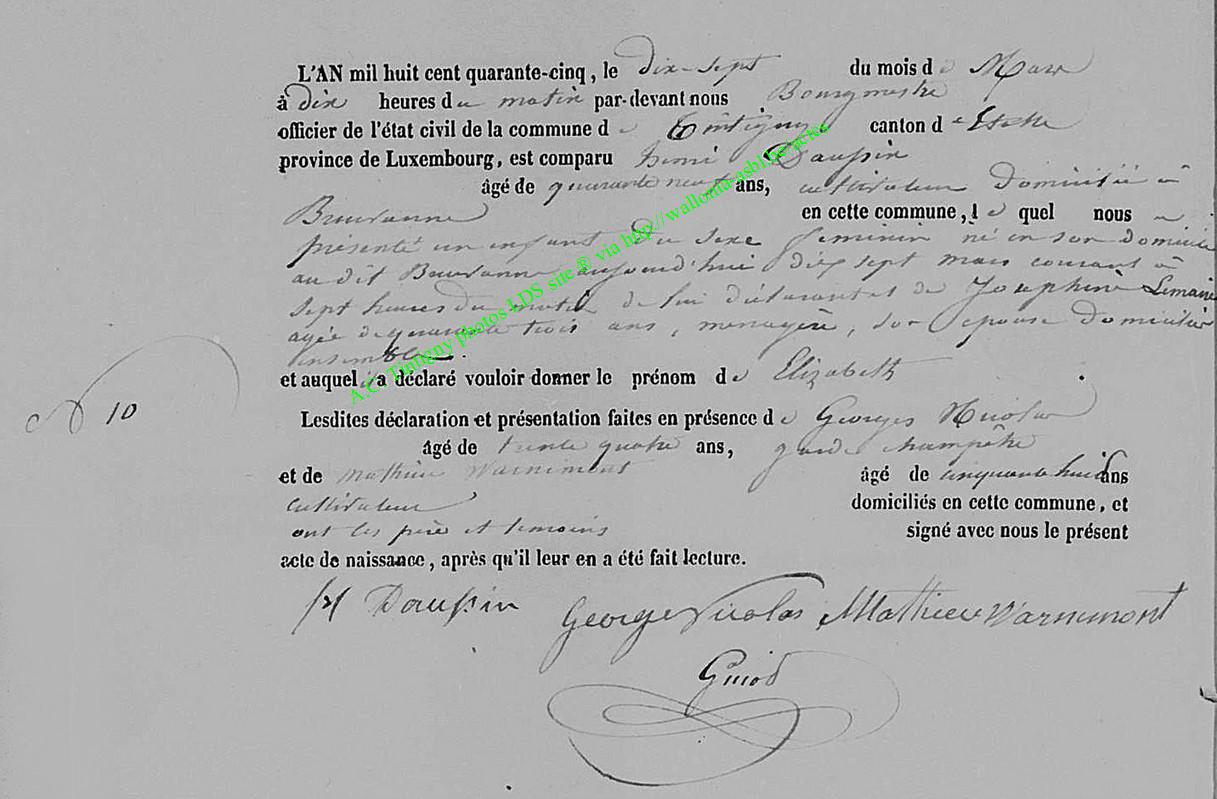 L'AN mil huit cent quarante-cinq, le dix-sept du mois de Mars
à dix heures du matin par-devant nous Bourgmestre
officier de l'état civil de la commune de Tintigny canton d'Etalle
province de Luxembourg, est comparu henri Daussin
âgé de quarante neuf ans, cultivateur domicilié à
en cette commune, le quel nous a
présenté un enfant du sexe féminin né en son domicile
au dit aujourd'hui dix sept mars courant à
sept heures du matin de lui déclarant et de Josephine Lemaire
agée de quarante trois ans, menagère, son epouse domiciliés
ensemble.
et auquel il a déclaré vouloir donner le prénom de Elizabeth
N 10
Lesdites déclaration et présentation faites en présence de Georges Nicolas
âgé de trente quatre ans, garde champêtre
et de Mathieu Warnimont âgé de cinquante huit ans
cultivateur domiciliés en cette commune, et
ont les père et temoins signé avec nous le présent
acte de naissance, après qu'il leur en a été fait lecture.
H Daussin George Nicolas Mathieu Warnimont
Guiod
A.C. Tintigny photos LDS site ® via http://wallonia-asbl.be/actes